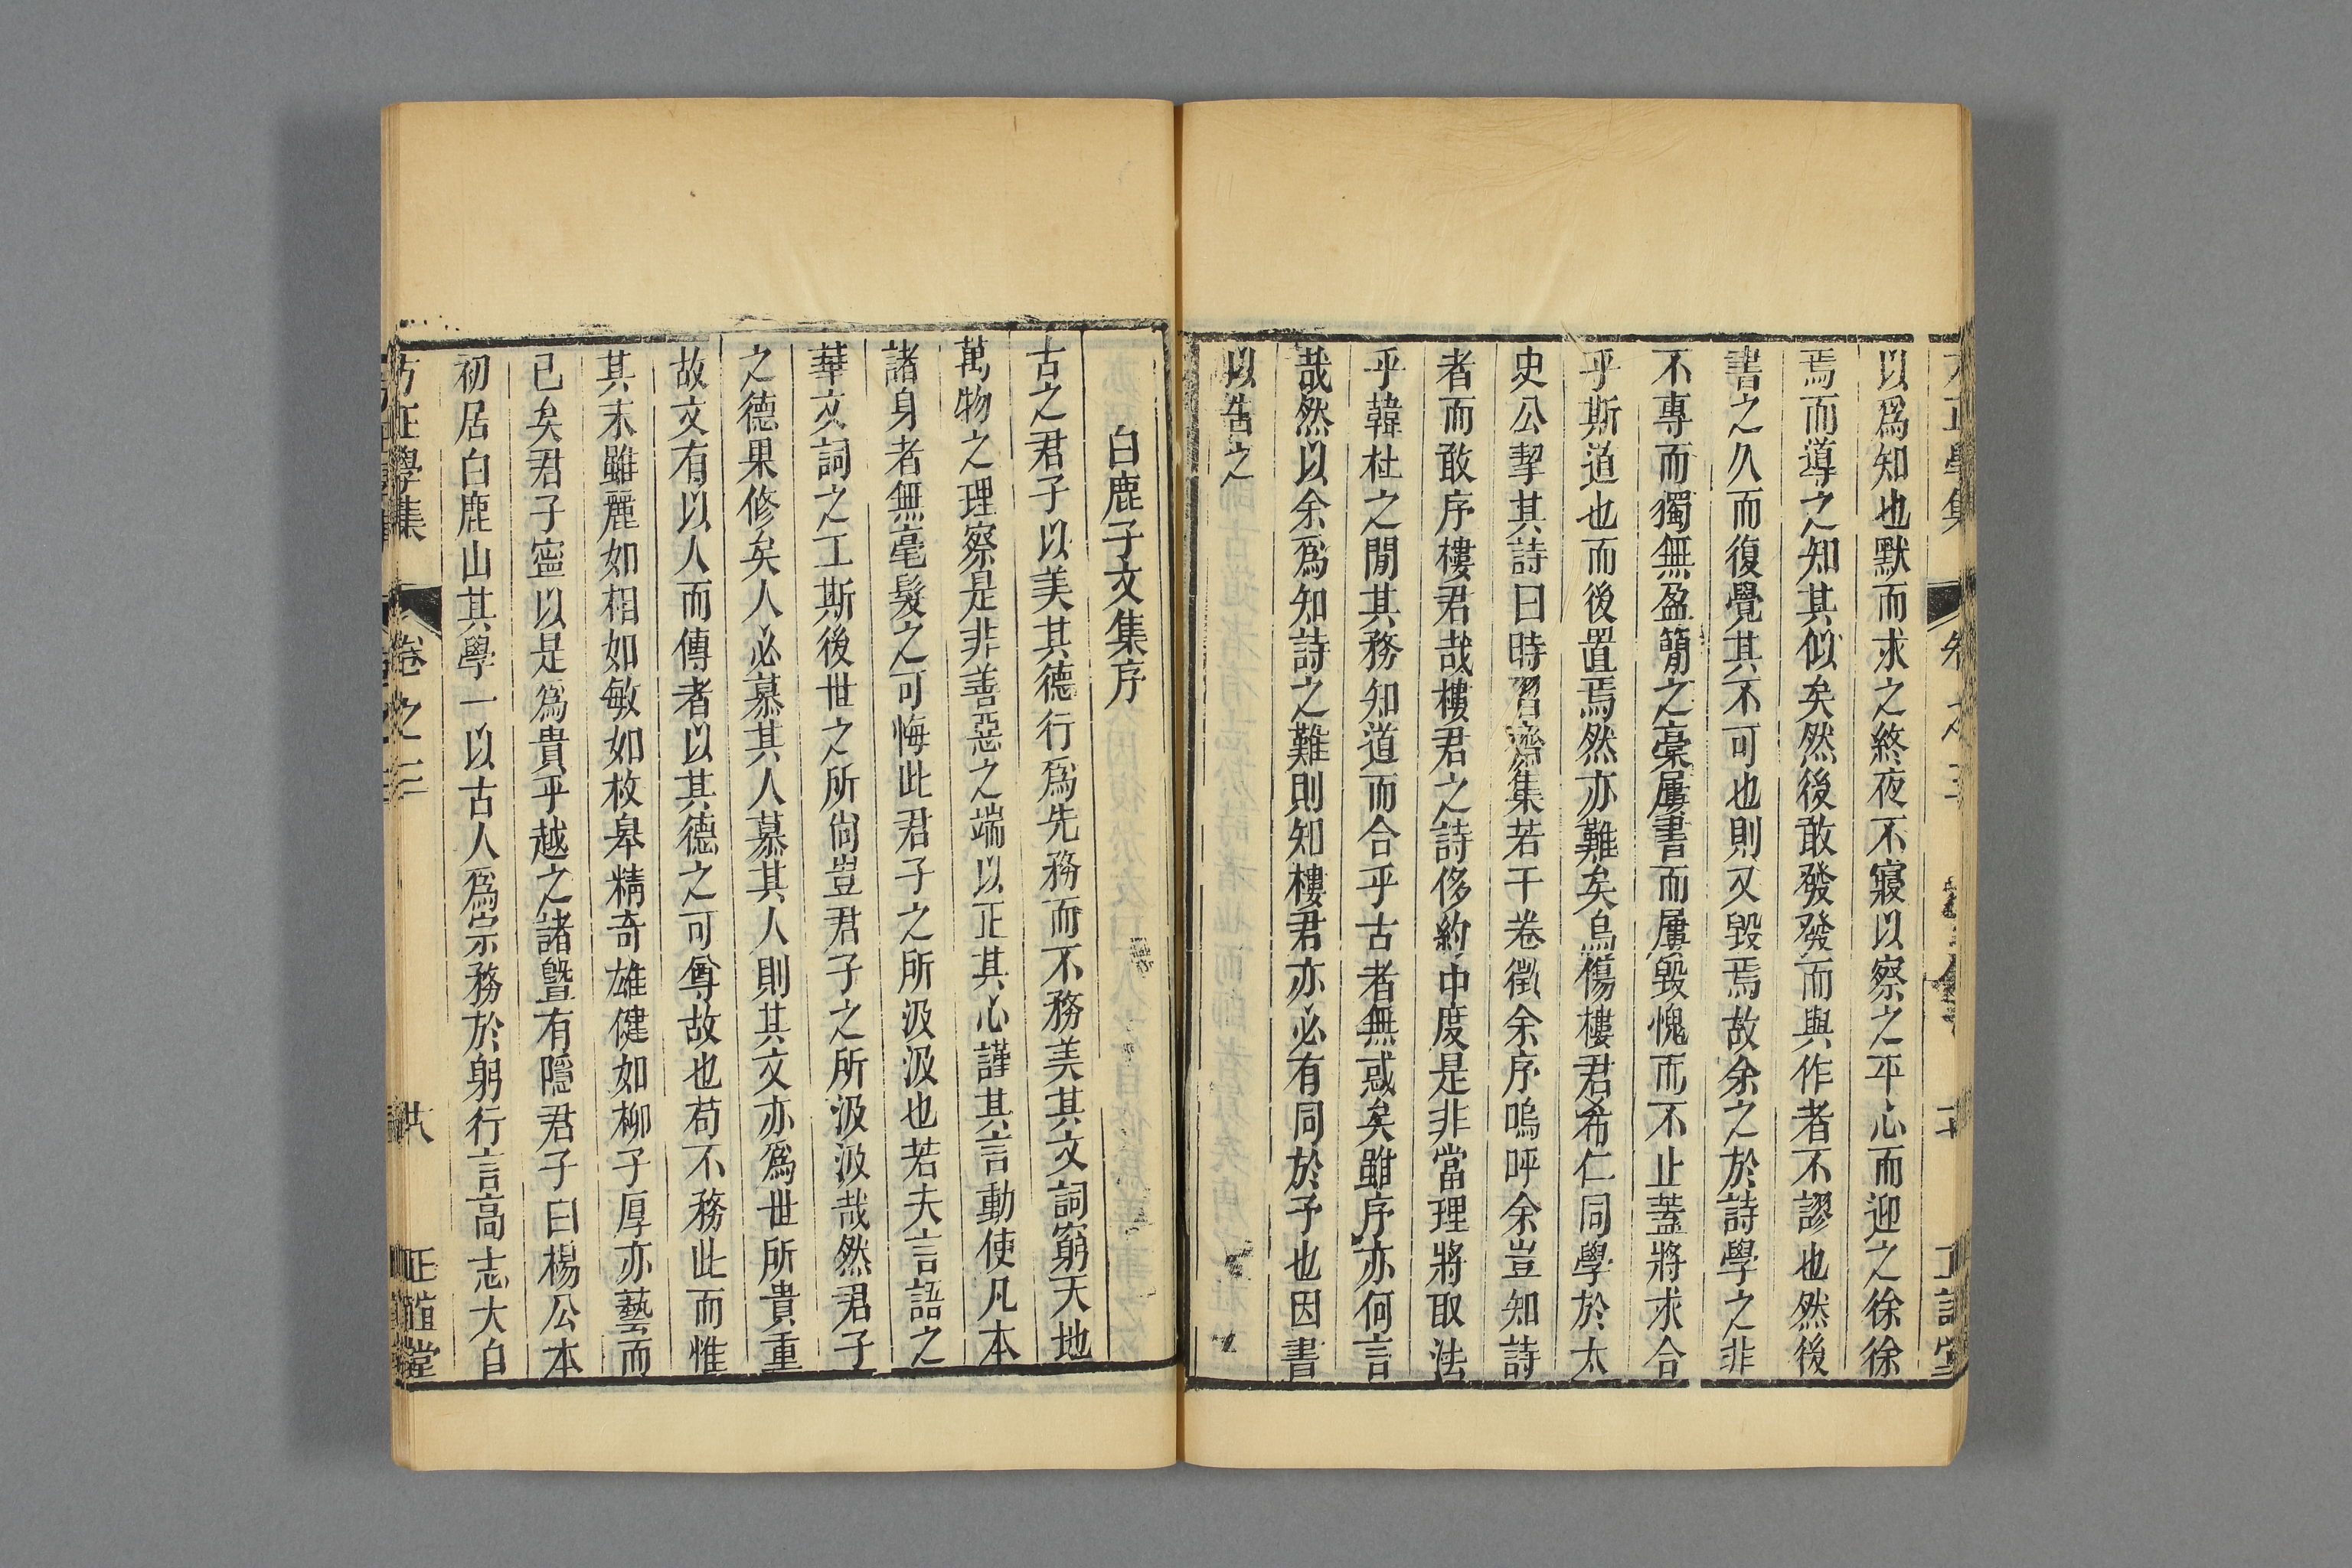 以爲知也默而求之終夜不寢以察之平心而迎之徐徐
焉而導之知其似矣然後敢發發而與作者不謬也然後
書之久而復覺其不可也則又毀焉故余之於詩學之非
不專而獨無盈簡之稾屢書而屢毀愧而不止蓋將求合
乎斯道也而後置焉然亦難矣烏傷樓君希仁同學於太
史公挈其詩曰時習齋集若干卷徵余序嗚呼余豈知詩
者而敢序樓君哉樓君之詩侈約中度是非當理將取法
乎韓杜之閒其務知道而合乎古者無惑矣雖序亦何言
哉然以余爲知詩之難則知樓君亦必有同於予也因書
以告之
白鹿子文集序
古之君子以美其德行爲先務而不務美其文詞窮天地
萬物之理察是非善惡之端以正其心謹其言動使凡本
諸身者無毫髮之可悔此君子之所汲汲也若夫言語之
華文詞之工斯後世之所尙豈君子之所汲汲哉然君子
之德果修矣人必慕其人慕其人則其文亦爲世所貴重
故文有以人而傳者以其德之可尊故也苟不務此而惟
其末雖麗如相如敏如枚皋精奇雄健如柳子厚亦藝而
已矣君子寧以是爲貴乎越之諸曁有隱君子曰楊公本
初居白鹿山其學一以古人爲宗務於躬行言高志大自
方正學集
卷之三
正誼堂